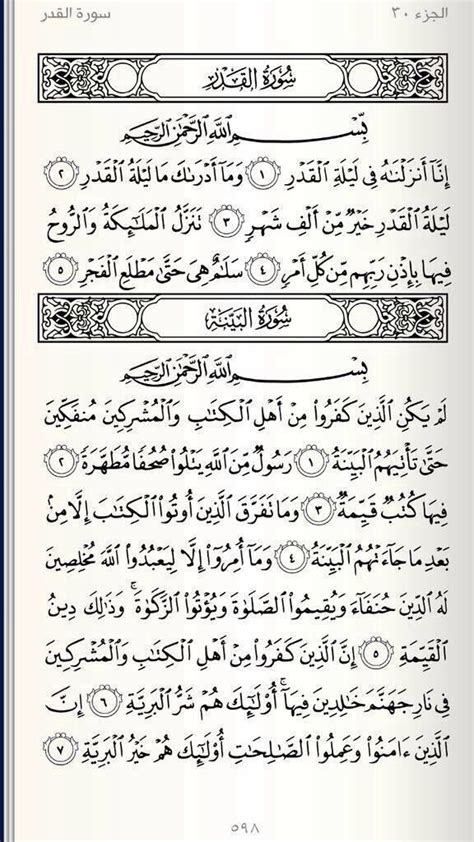 الجزء ٣٠ سورة القدر
سُورَةُ القَدْرِ
بِسْمِ اللَّهِ الرَّحْمَٰنِ الرَّحِيمِ
إِنَّآ أَنزَلْنَٰهُ فِى لَيْلَةِ ٱلْقَدْرِ ١ وَمَآ أَدْرَىٰكَ مَا لَيْلَةُ ٱلْقَدْرِ ٢
لَيْلَةُ ٱلْقَدْرِ خَيْرٌ مِّنْ أَلْفِ شَهْرٍ ٣ تَنَزَّلُ ٱلْمَلَٰٓئِكَةُ وَٱلرُّوحُ
فِيهَا بِإِذْنِ رَبِّهِم مِّن كُلِّ أَمْرٍ ٤ سَلَٰمٌ هِىَ حَتَّىٰ مَطْلَعِ ٱلْفَجْرِ ٥
سُورَةُ البَيِّنَةِ
بِسْمِ اللَّهِ الرَّحْمَٰنِ الرَّحِيمِ
لَمْ يَكُنِ ٱلَّذِينَ كَفَرُوا۟ مِنْ أَهْلِ ٱلْكِتَٰبِ وَٱلْمُشْرِكِينَ مُنفَكِّينَ
حَتَّىٰ تَأْتِيَهُمُ ٱلْبَيِّنَةُ ١ رَسُولٌ مِّنَ ٱللَّهِ يَتْلُوا۟ صُحُفًا مُّطَهَّرَةً ٢
فِيهَا كُتُبٌ قَيِّمَةٌ ٣ وَمَا تَفَرَّقَ ٱلَّذِينَ أُوتُوا۟ ٱلْكِتَٰبَ إِلَّا مِنۢ
بَعْدِ مَا جَآءَتْهُمُ ٱلْبَيِّنَةُ ٤ وَمَآ أُمِرُوٓا۟ إِلَّا لِيَعْبُدُوا۟ ٱللَّهَ مُخْلِصِينَ
لَهُ ٱلدِّينَ حُنَفَآءَ وَيُقِيمُوا۟ ٱلصَّلَوٰةَ وَيُؤْتُوا۟ ٱلزَّكَوٰةَ ۚ وَذَٰلِكَ دِينُ
ٱلْقَيِّمَةِ ٥ إِنَّ ٱلَّذِينَ كَفَرُوا۟ مِنْ أَهْلِ ٱلْكِتَٰبِ وَٱلْمُشْرِكِينَ
فِى نَارِ جَهَنَّمَ خَٰلِدِينَ فِيهَآ ۚ أُو۟لَٰٓئِكَ هُمْ شَرُّ ٱلْبَرِيَّةِ ٦ إِنَّ
ٱلَّذِينَ ءَامَنُوا۟ وَعَمِلُوا۟ ٱلصَّٰلِحَٰتِ أُو۟لَٰٓئِكَ هُمْ خَيْرُ ٱلْبَرِيَّةِ ٧
٥٩٨